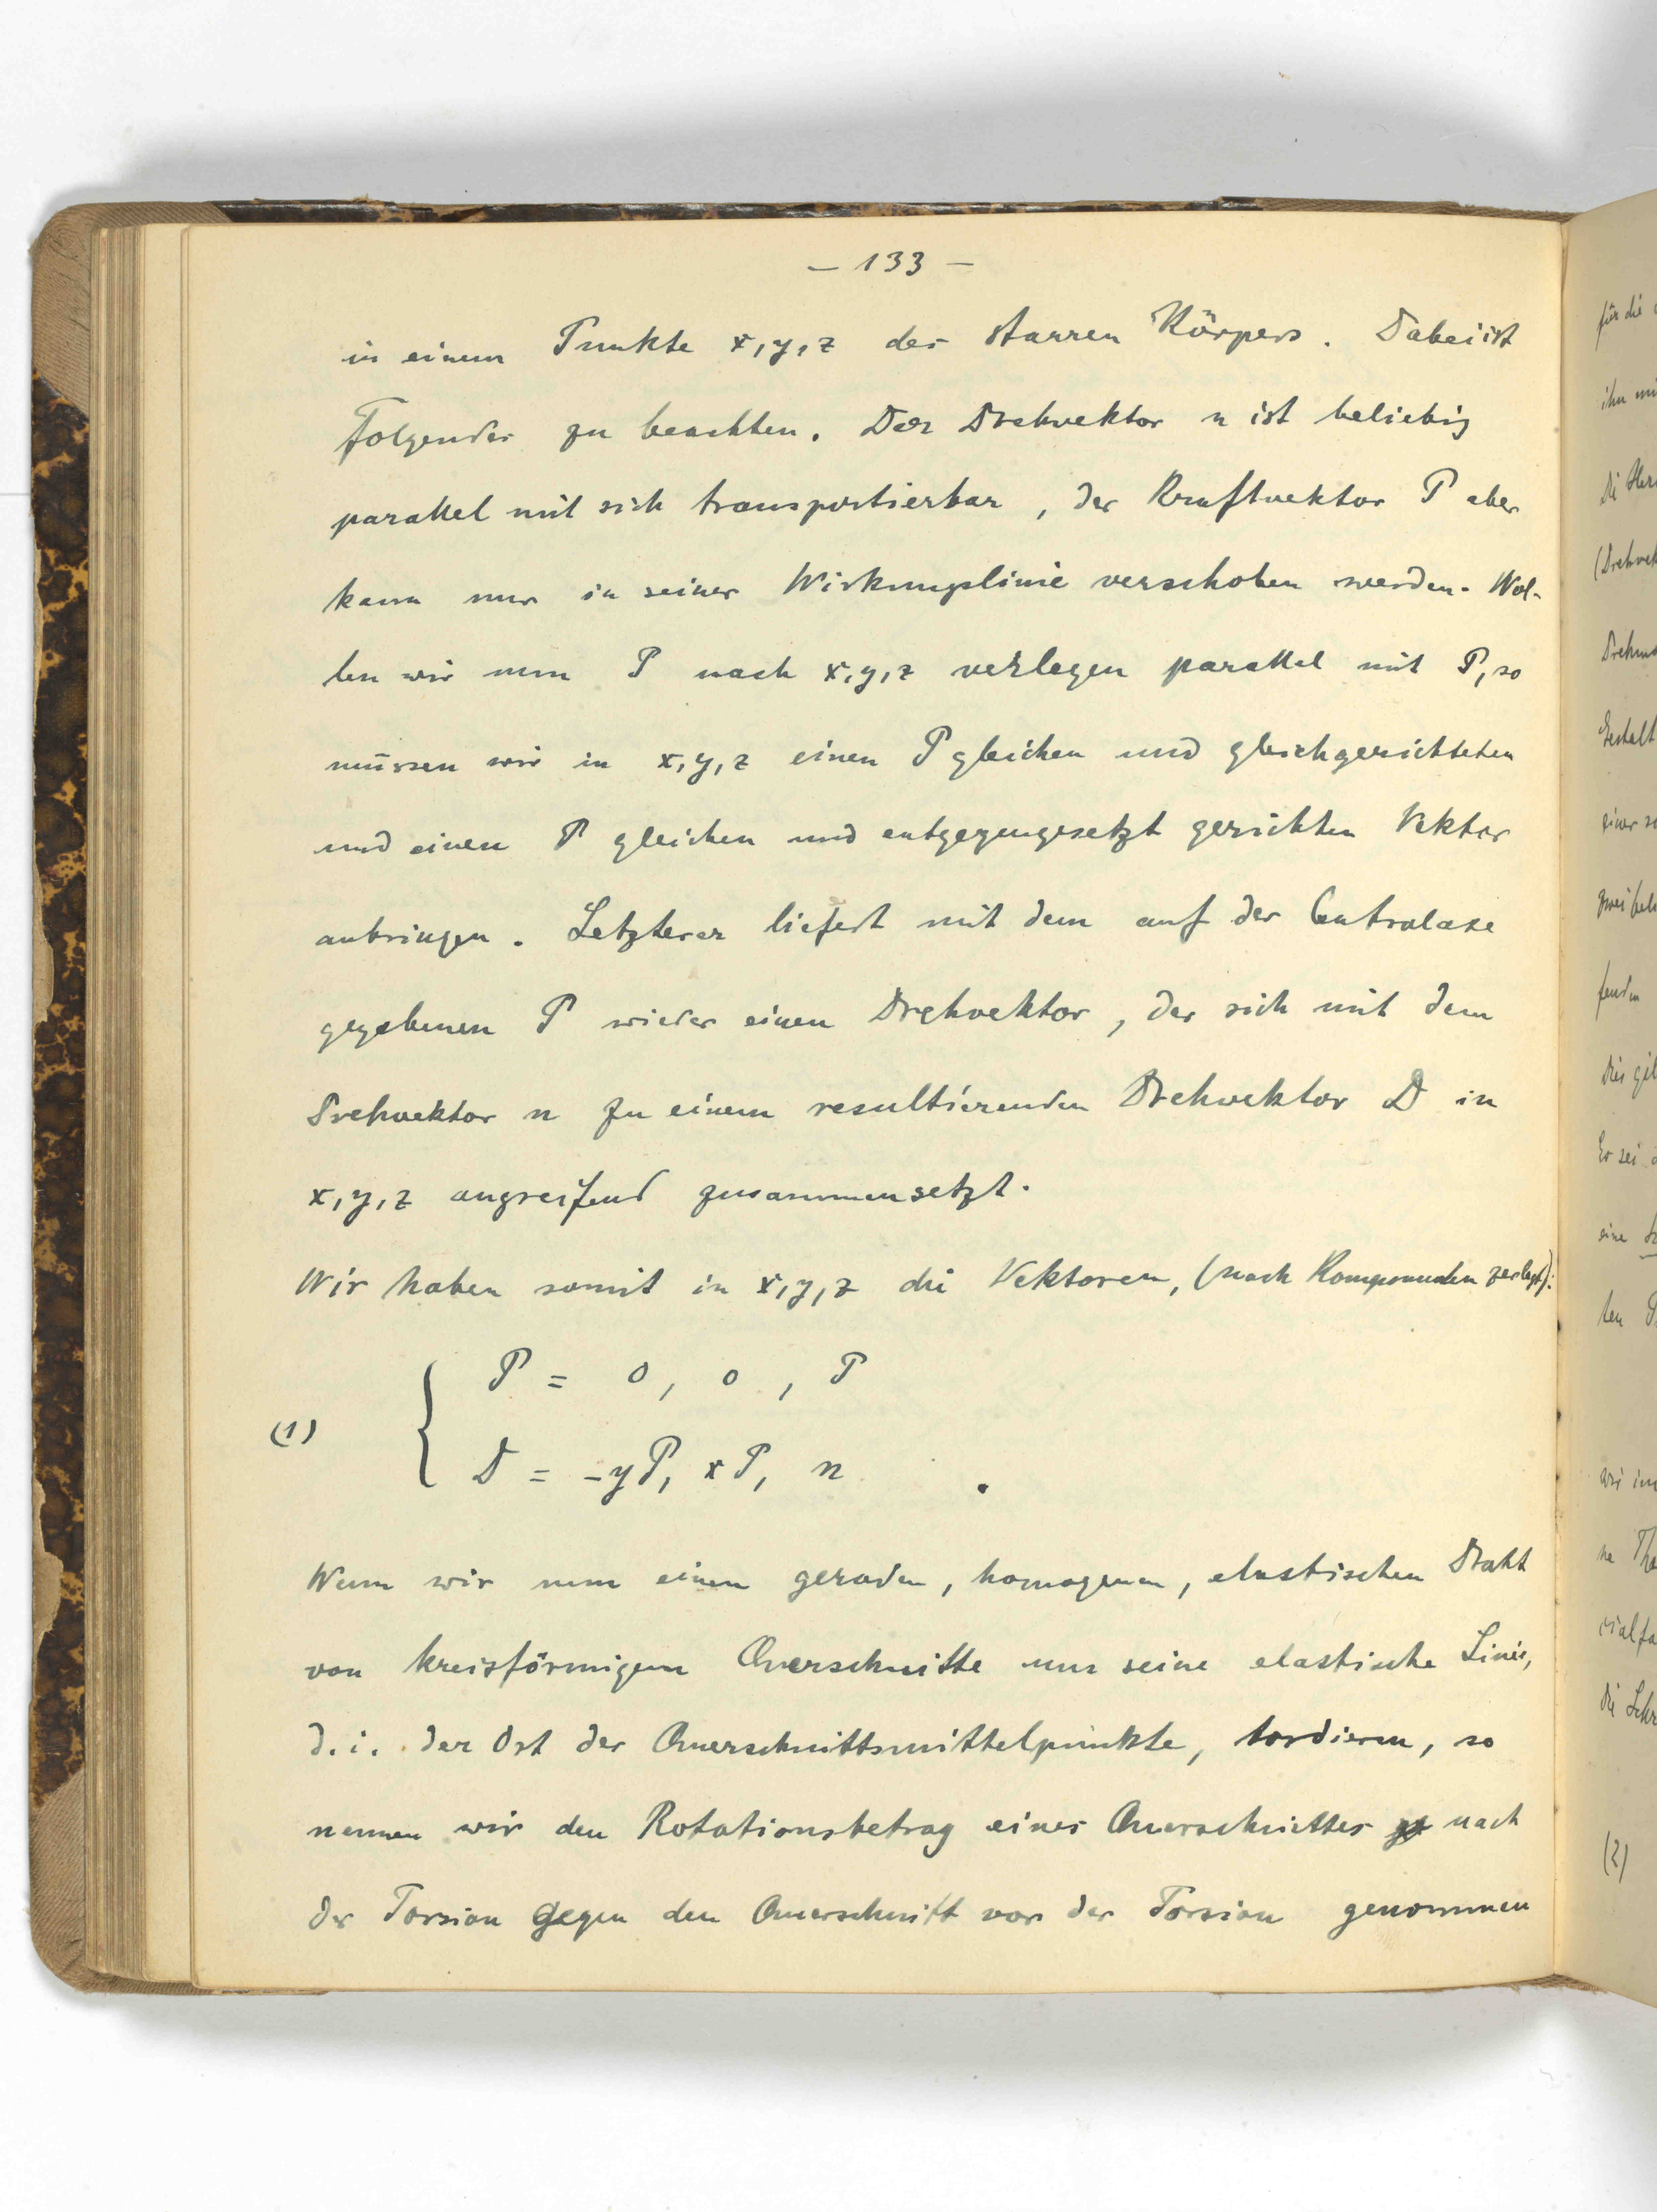 – 133 –
in einem Punkte x, y, z des starren Körpers. Dabei ist
Folgendes zu beachten. Der Drehvektor n ist beliebig
parallel mit sich transportierbar, der Kraftvektor P aber
kann nur in seiner Wirkungslinie verschoben werden. Wol-
len wir nun P nach x, y, z verlegen parallel mit P, so
müssen wir in x, y, z einen P gleichen und gleichgerichteten
und einen P gleichen und entgegengesetzt gerichten Vektor
anbringen. Letzterer liefert mit dem auf der Centralaxe
gegebenen P wieder einen Drehvektor, der sich mit dem
Drehvektor n zu einem resultierenden Drehvektor D in
x, y, z angreifend zusammensetzt.
Wir haben somit in x, y, z die Vektoren, (nach Komponenten zerlegt):
P = 0, 0, P
(1)
D = -yP, xP, n .
Wenn wir nun einen geraden, homogenen, elastischen Draht
von kreisförmigem Querschnitte um seine elastische Linie,
d.i. der Ort der Querschnittsmittelpunkte, tordieren, so
nennen wir den Rotationsbetrag eines Querschnittes nach
der Torsion gegen den Querschnitt vor der Torsion genommen
für die
ihn mi
(Drehvek
Gestalt
einer so
fenden
dies gil
Er sei
eine
ten P
wir im
die Schr
(2)